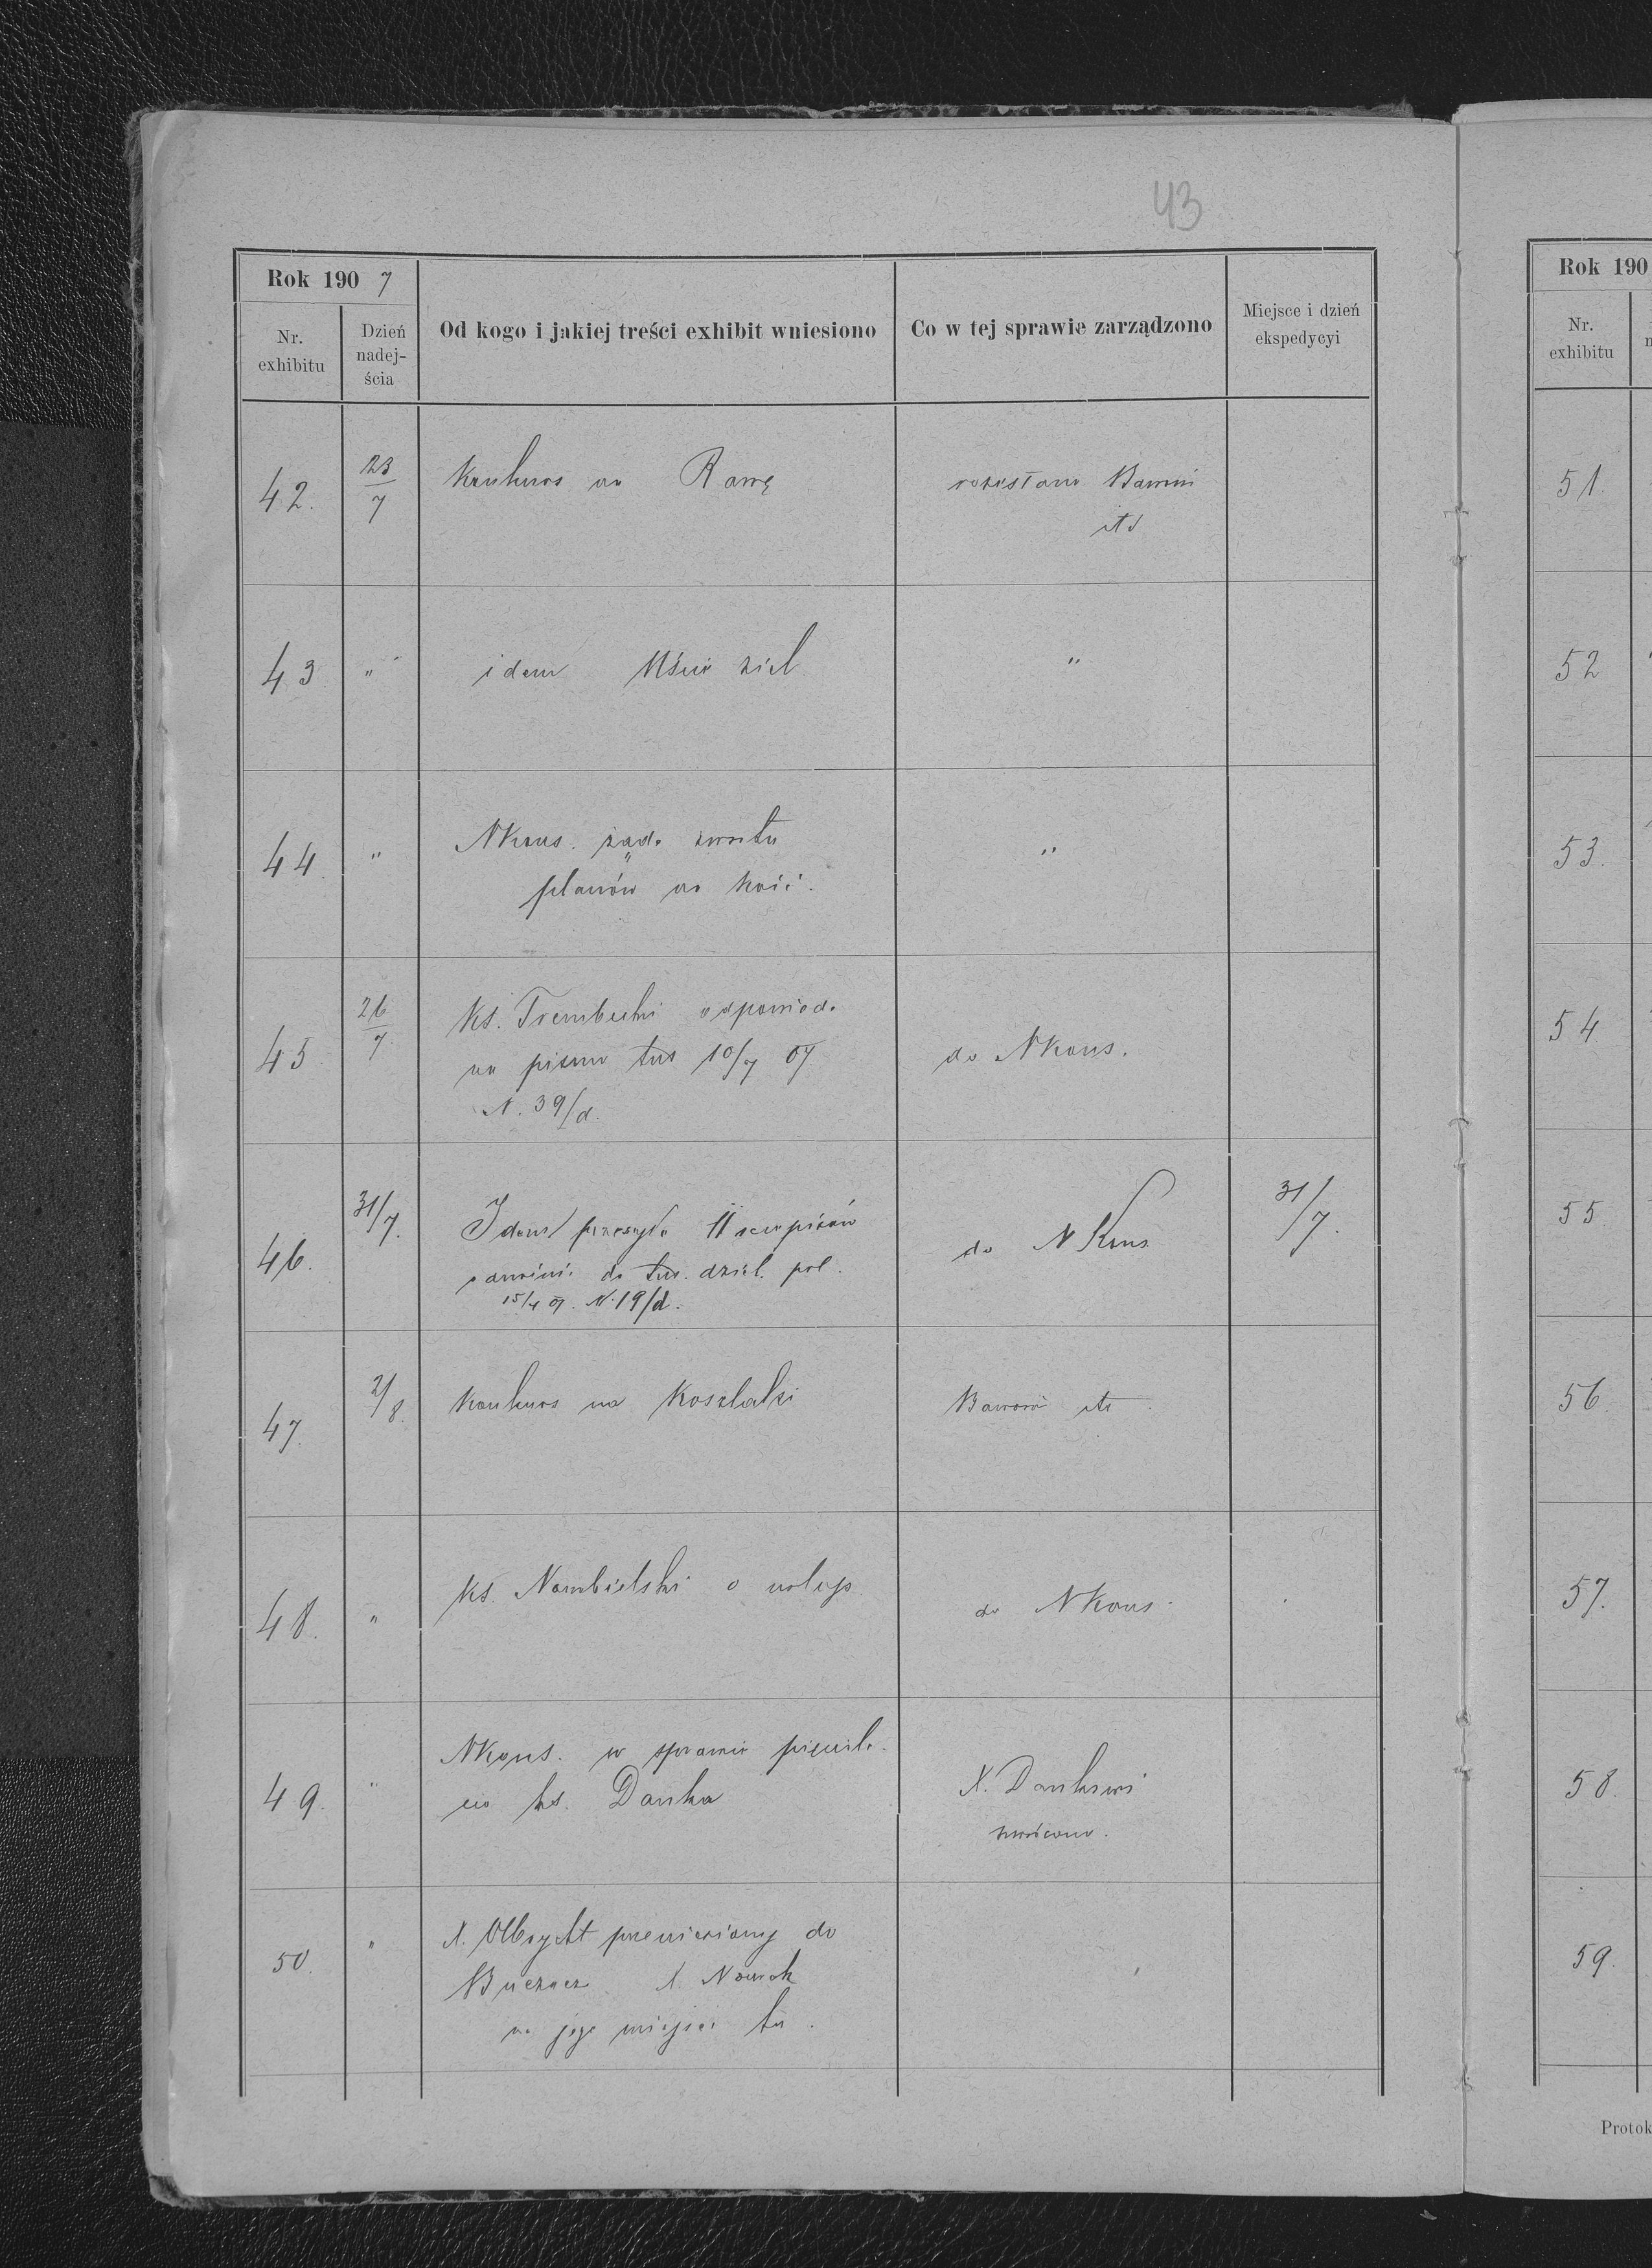 43
Rok 190 7
Nr. exhibitu
Dzień nadejścia
Od kogo i jakiej treści exhibit wniesiono
Co w tej sprawie zarządzono
Miejsce i dzień ekspedycyi
42. 23/7 Konkurs na Rawę
rozesłano
itd
43 " idem Uście ziel "
44. " NKons. żąda zwrotu "
planów na kość.
45 26/7 Ks. Trembecki odpowiada
na pismo tus 10/7 07
N. 39/d.
do NKons.
46. 31/7. Idem przesyła
do tus. dziel. pol.
15/4 07. N. 19/d.
do NKons 31/7.
47. 2/8. Konkurs na Koszlaki
itd
48. " Ks. Nambielski o urlop
do NKons.
49. " NKons. w sprawie
ks. Danka
X. Dankowi
zwrócono.
50. " X. Olbrycht przeniesiony do
Buczacz X. Nowak
na jego miejsce tu.
Rok 190
Nr. exhibitu
51.
52
53.
54
55
56.
57.
58.
59.
Protok